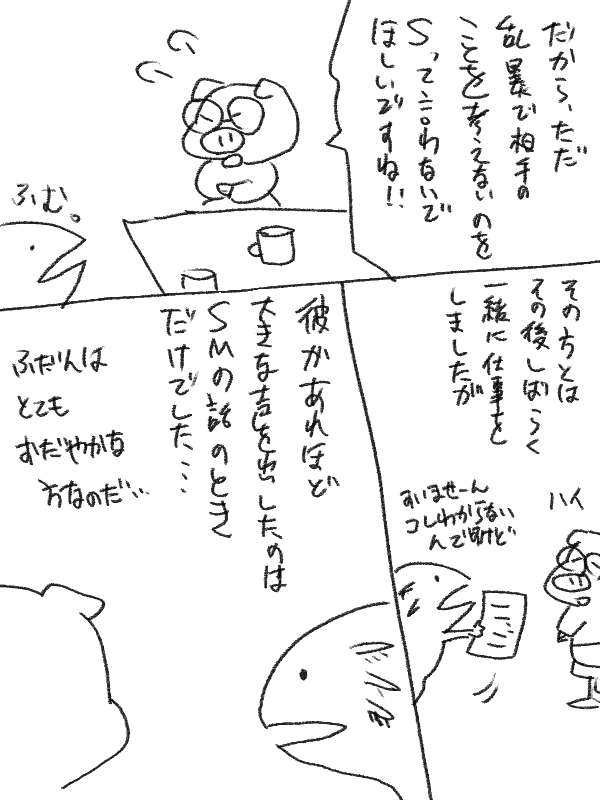 だから、ただ
乱暴で相手の
ことを考えないのを
Sって言わないで
ほしいですね!!
ふむ。
その方とは
その後しばらく
一緒に仕事を
しましたが
ハイ
すいませーん
コレわからない
んですけど
彼があれほど
大きな声を出したのは
SMの話のとき
だけでした…
ふだんは
とても
おだやかな
方なのだ…